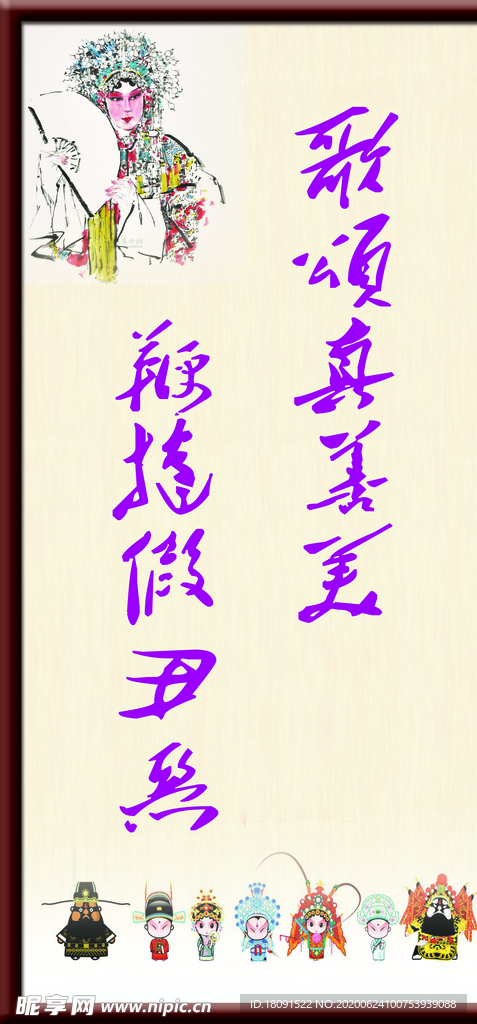 歌颂真善美
鞭挞假丑恶
昵享网 www.nipic.cn
ID:18091522 NO:20200624100753939088